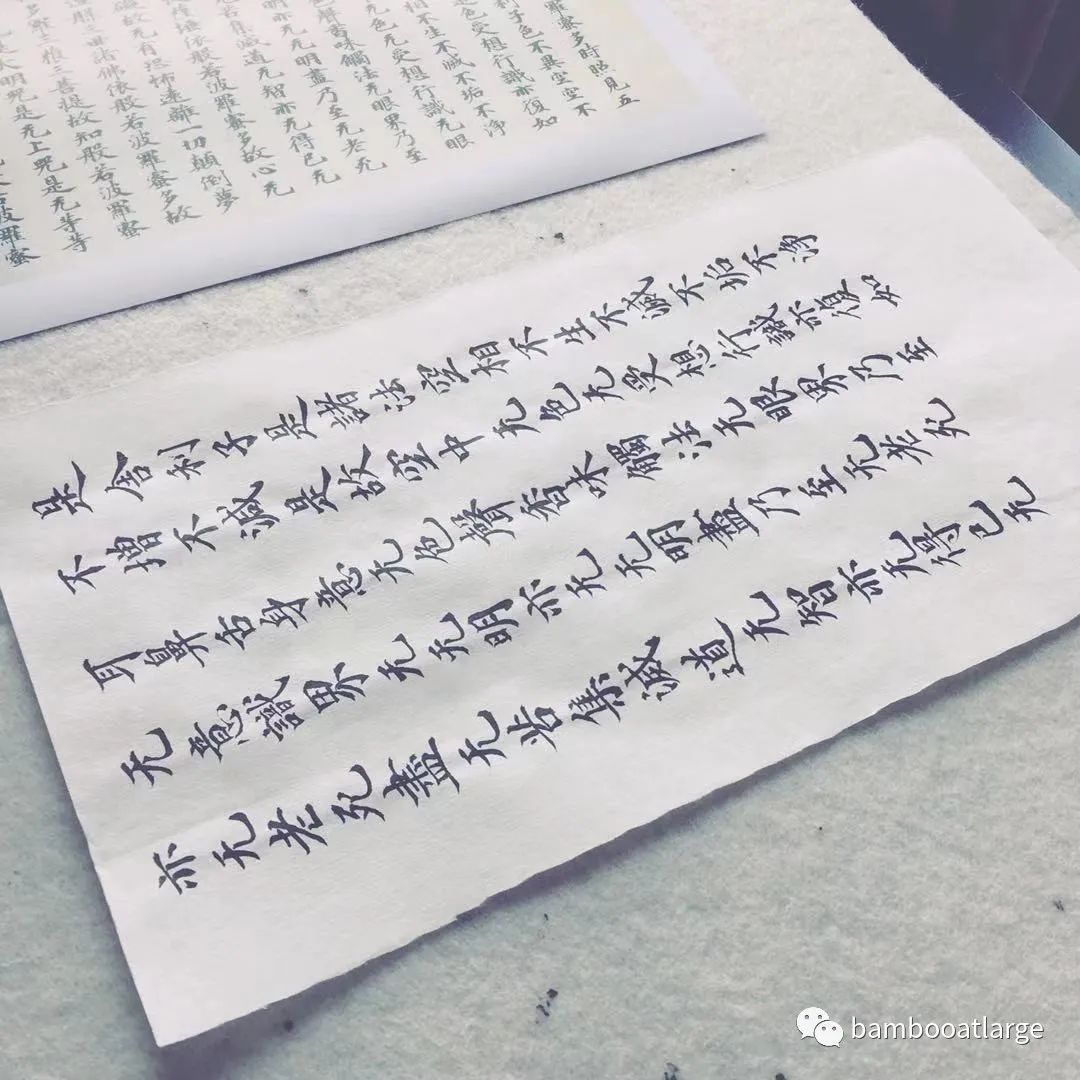 羅蜜多時照見五
利子色不異空空不
色受想行識亦復如
相不生不滅不垢不淨
无色无受想行識无眼
色聲香味觸法无眼界乃至
亦无无明盡乃至无老无
苦集滅道无智亦无得已无
依般若波羅蜜多故心无
礙故无有恐怖遠離一切顛倒夢
三世諸佛依般若波羅蜜多故
三菩提故知般若波羅蜜
大明咒是无上咒是无等等
波羅蜜
是舍利子是諸法空相不生不滅不垢不淨
不增不減是故空中无色无受想行識亦復如
耳鼻舌身意无色聲香味觸法无眼界乃至
无意識界无无明亦无无明盡乃至无老死
亦无老死盡无苦集滅道无智亦无得已无
bambooatlarge